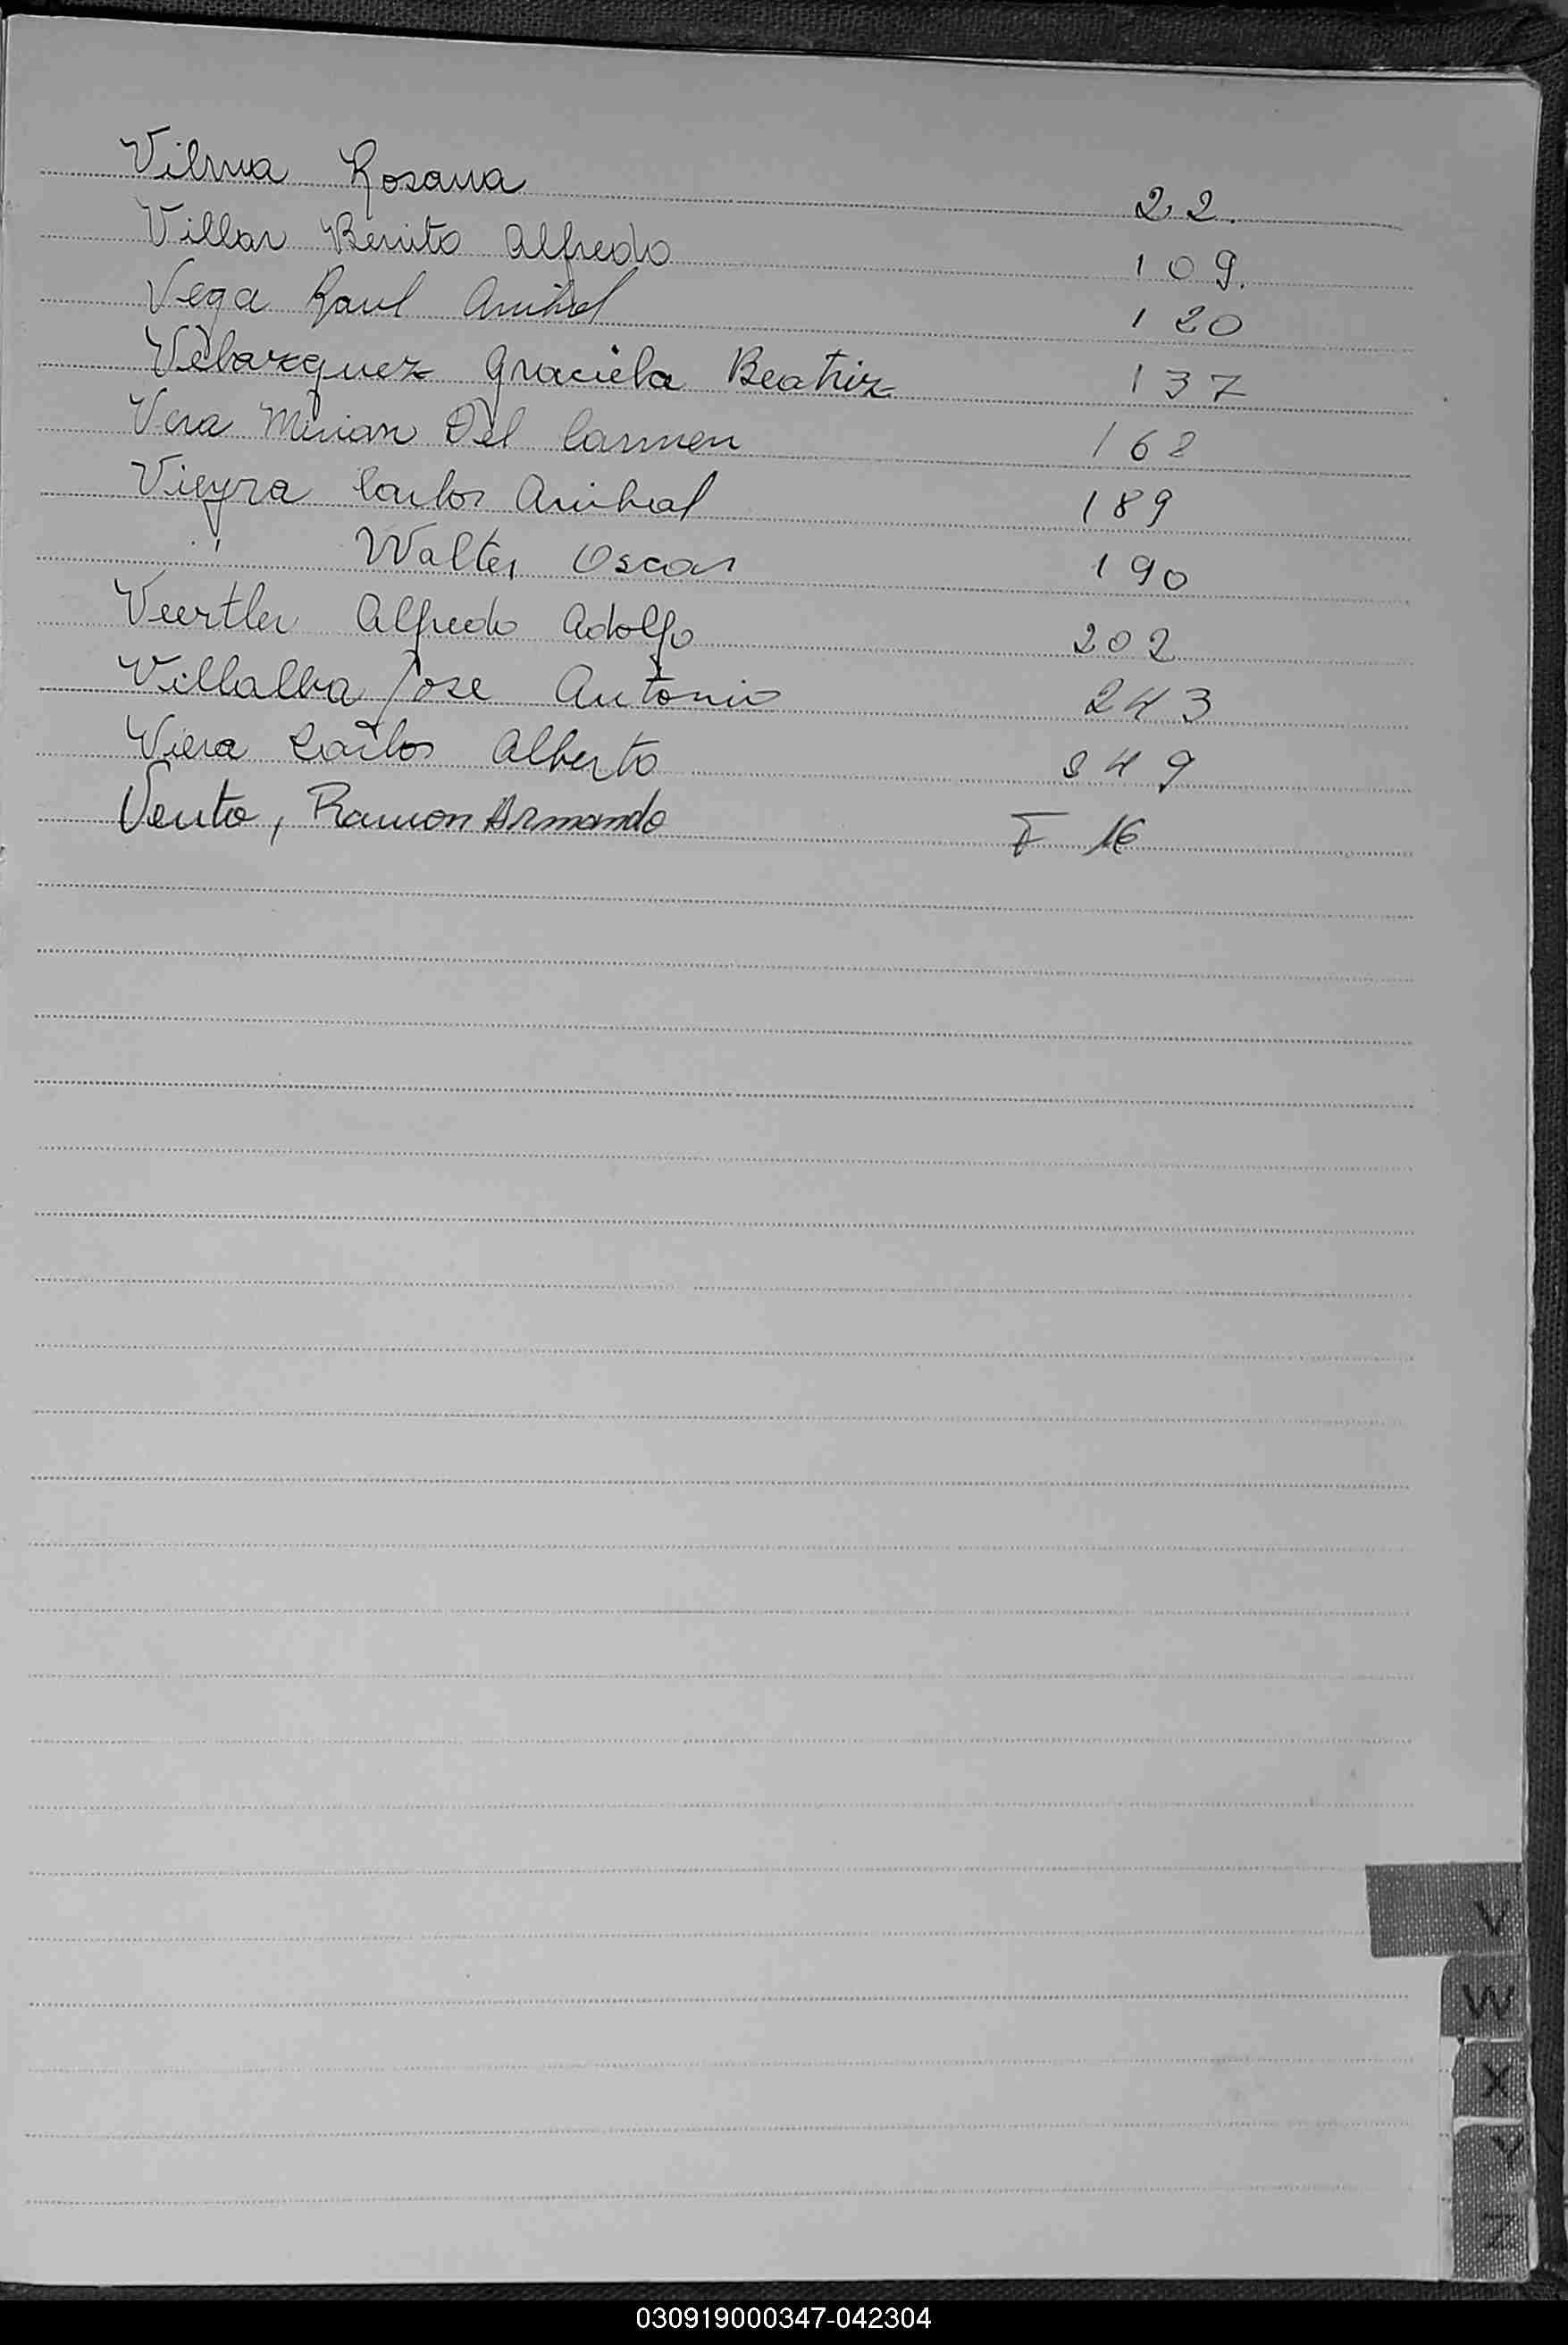 Vilma Rosana 22.
Villar Benito Alfredo 109.
Vega Raul Anibal 120
Velazquez Graciela Beatriz 137
Vera Mirian Del Carmen 162
Vieyra Carlos Anibal 189
" Walter Oscar 190
Veertler Alfredo Adolfo 202
Villalba Jose Antonio 243
Viera Carlos Alberto 349
Vento, Ramon Armando F 16
V
W
X
Y
Z
030919000347-042304